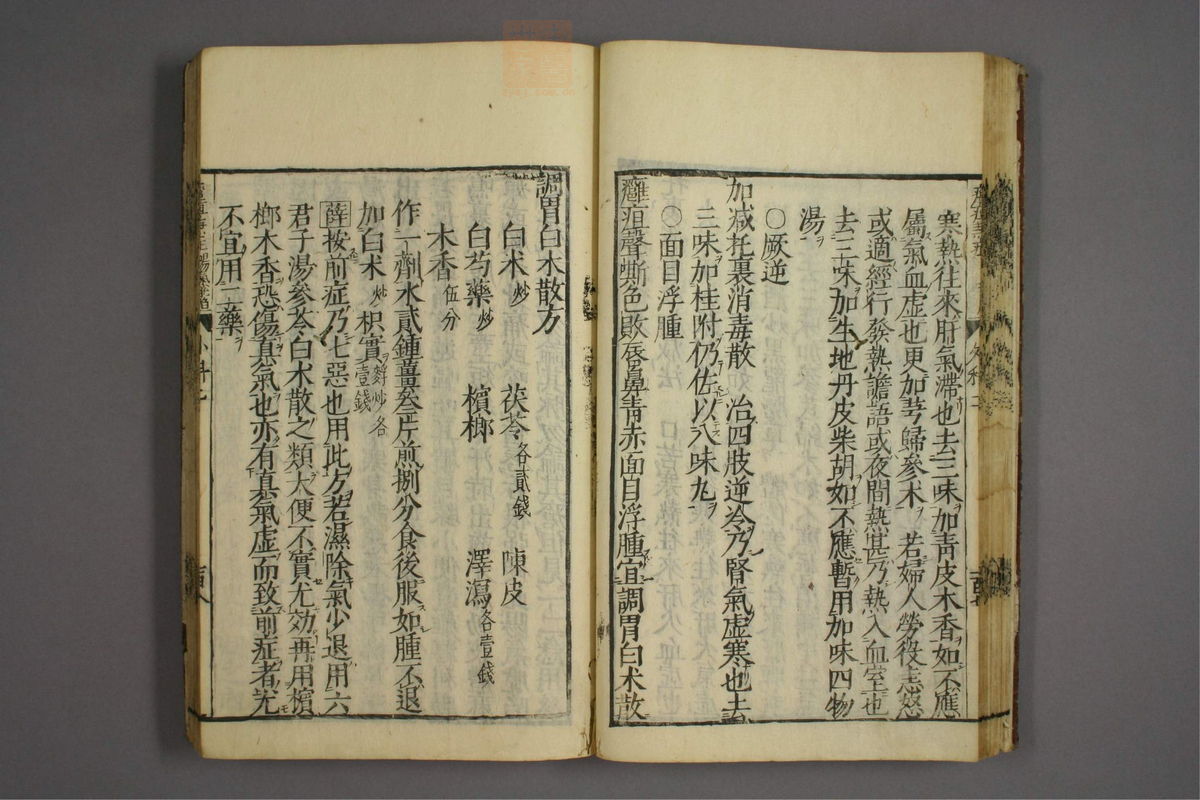 寒熱往來肝氣滯也去三味加青皮木香如不應
屬氣血虛也更加芎歸參术若婦人勞役恚怒
或適經行發熱譫語或夜間熱甚乃熱入血室也
去三味加生地丹皮柴胡如不應暫用加味四物
湯
〇厥逆
加减托裏消毒散 治四肢逆冷乃腎氣虛寒也去
三味加桂附仍佐以八味丸
〇面目浮腫
癰疽聲嘶色敗唇鼻青赤面目浮腫宜調胃白术散
調胃白术散方
白术炒 茯苓各貳錢 陳皮
白芍藥炒 檳榔 澤瀉各壹錢
木香伍分
作一劑水貳鍾薑叁片煎捌分食後服如腫不退
加白术炒枳實麩炒各壹錢
薛按前症乃七惡也用此方若濕除氣少退用六
君子湯參苓白术散之類大便不實尤効再用檳
榔木香恐傷真氣也亦有真氣虛而致前症者尤
不宜用二藥